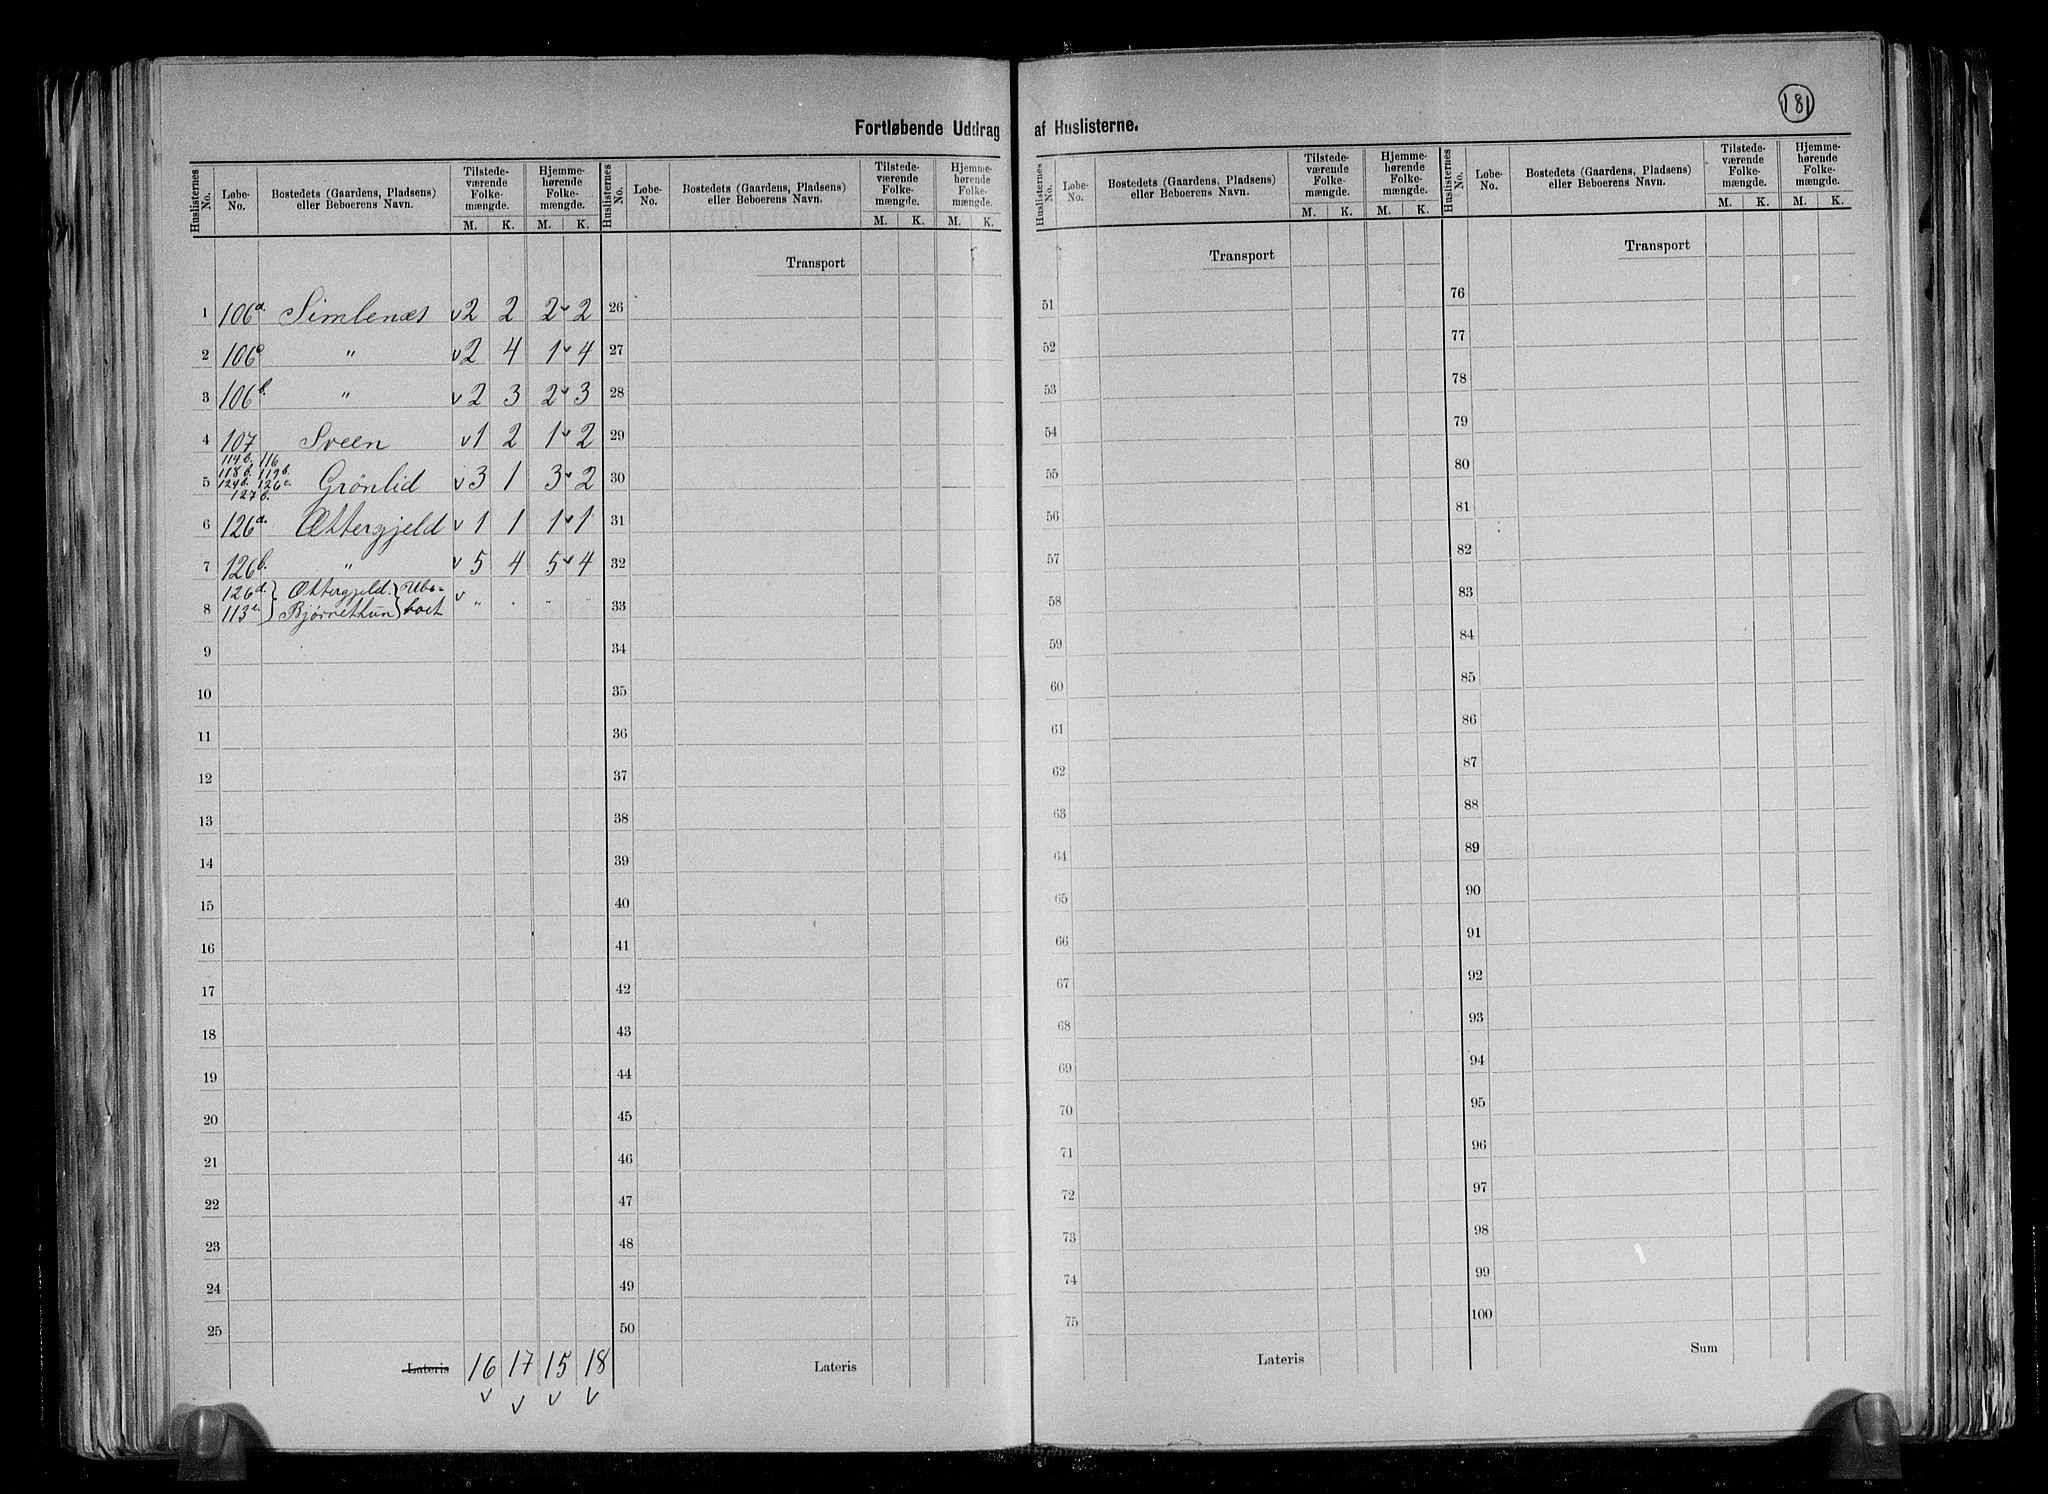 181
Fortløbende Uddrag af Huslisterne.
Huslisternes No. Løbe-No. Bostedets (Gaardens, Pladsens) eller Beboerens Navn. Tilstedeværende Folkemængde. M. K. Hjemmehørende Folkemængde. M. K.
1 106a. Simlenæs v 2 2 2 v 2
2 106c " v 2 4 1 v 4
3 106b. " v 2 3 2 v 3
4 107 Sveen v 1 2 1 v 2
114b. 116
118b. 119b.
5 124b. 126c. Grönlid v 3 1 3 v 2
127b.
6 126a. Ættergjeld v 1 1 1 v 1
7 126b. " v 5 4 5 v 4
126d. } Ættergjeld. } Ubo- v
8 113c. } Bjørnethun } boet " " " "
9
10
11
12
13
14
15
16
17
18
19
20
21
22
23
24
25
Lateris 16 17 15 18
v v v v
Huslisternes No. Løbe-No. Bostedets (Gaardens, Pladsens) eller Beboerens Navn. Tilstedeværende Folkemængde. M. K. Hjemmehørende Folkemængde. M. K.
Transport
26
27
28
29
30
31
32
33
34
35
36
37
38
39
40
41
42
43
44
45
46
47
48
49
50
Lateris
Huslisternes No. Løbe-No. Bostedets (Gaardens, Pladsens) eller Beboerens Navn. Tilstedeværende Folkemængde. M. K. Hjemmehørende Folkemængde. M. K.
Transport
51
52
53
54
55
56
57
58
59
60
61
62
63
64
65
66
67
68
69
70
71
72
73
74
75
Lateris
Huslisternes No. Løbe-No. Bostedets (Gaardens, Pladsens) eller Beboerens Navn. Tilstedeværende Folkemængde. M. K. Hjemmehørende Folkemængde. M. K.
Transport
76
77
78
79
80
81
82
83
84
85
86
87
88
89
90
91
92
93
94
95
96
97
98
99
100
Sum